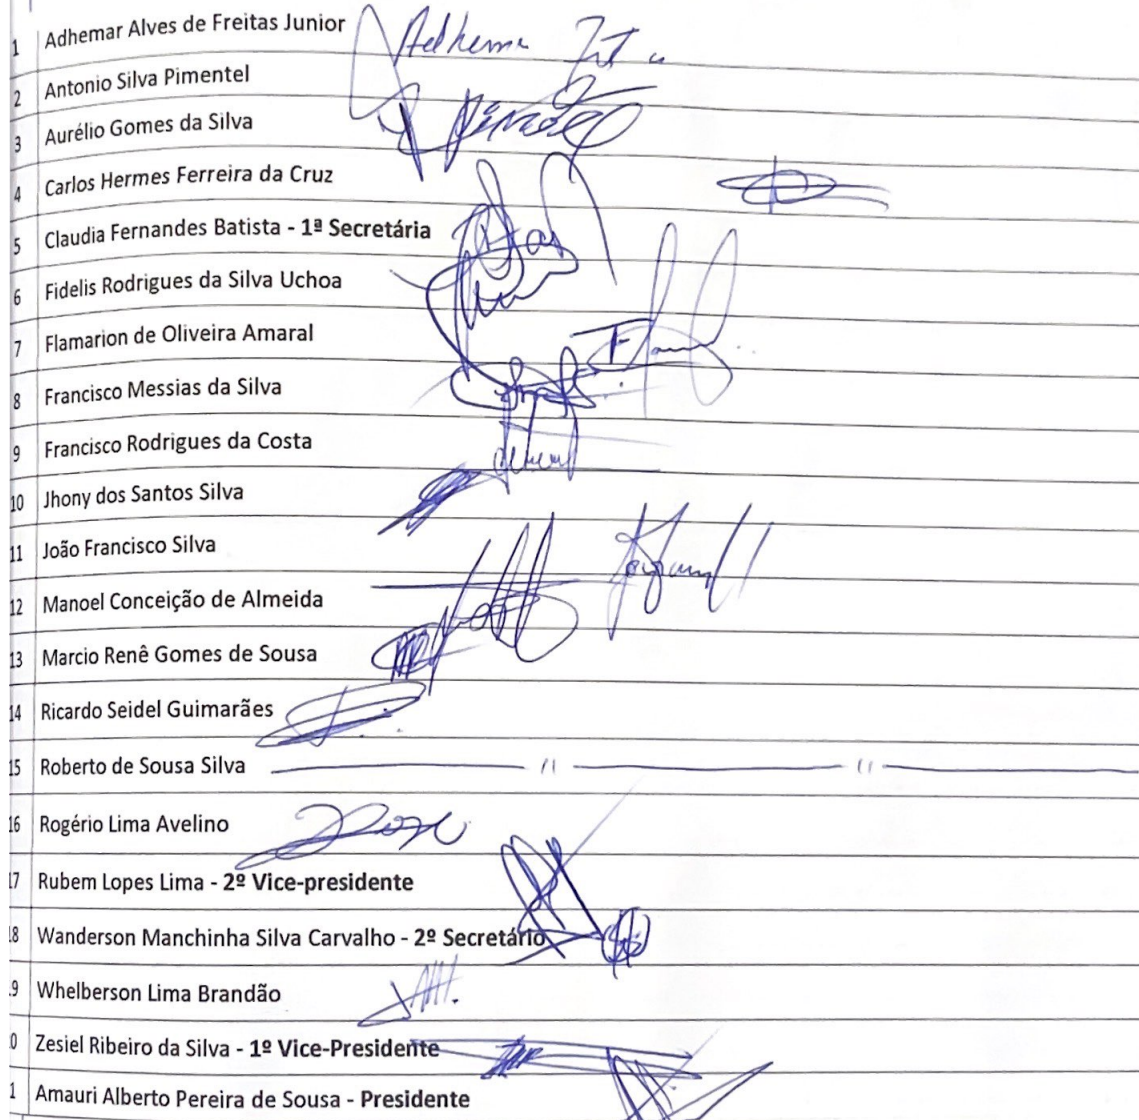 1 Adhemar Alves de Freitas Junior Adhemar
2 Antonio Silva Pimentel
3 Aurélio Gomes da Silva
4 Carlos Hermes Ferreira da Cruz
5 Claudia Fernandes Batista - 1ª Secretária
6 Fidelis Rodrigues da Silva Uchoa
7 Flamarion de Oliveira Amaral
8 Francisco Messias da Silva
9 Francisco Rodrigues da Costa
10 Jhony dos Santos Silva
11 João Francisco Silva
12 Manoel Conceição de Almeida
13 Marcio Renê Gomes de Sousa
14 Ricardo Seidel Guimarães
15 Roberto de Sousa Silva
16 Rogério Lima Avelino
17 Rubem Lopes Lima - 2º Vice-presidente
8 Wanderson Manchinha Silva Carvalho - 2º Secretário
9 Whelberson Lima Brandão
0 Zesiel Ribeiro da Silva - 1º Vice-Presidente
1 Amauri Alberto Pereira de Sousa - Presidente